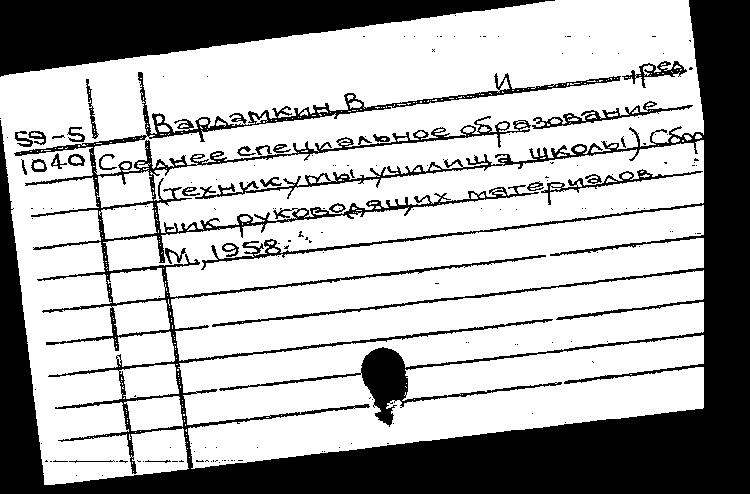 Варламкин, В И , ред.
59-5
1040 Среднее специальное образование
(техникумы, училища, школы). Сбор
ник руководящих материалов.
М., 1958.